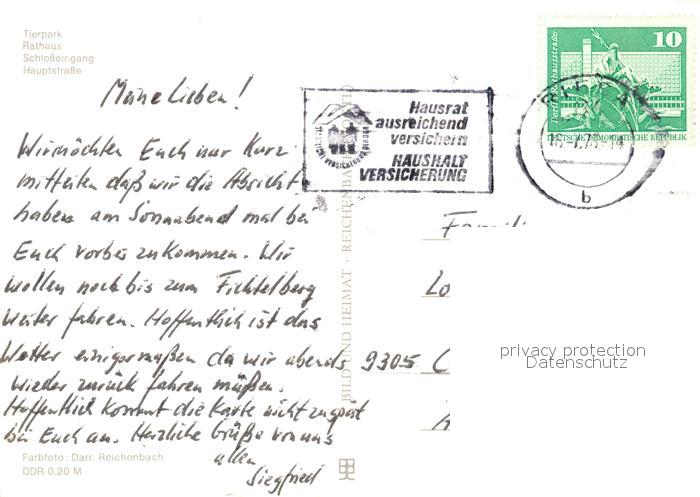 Tierpark
Rathaus
Schloßeingang
Hauptstraße
Meine Lieben!
Wir möchten Euch nur Kurz
mitteilen daß wir die Absicht
haben am Sonnabend mal bei
Euch vorbei zu kommen. Wir
wollen noch bis zum Fichtelberg
weiter fahren. Hoffentlich ist das
Wetter einigermaßen da wir abends
wieder zurück fahren müßen.
Hoffentlich kommt die Karte nicht zu spät
bei Euch an. Herzliche Grüße von uns
allen
Siegfried
Farbfoto: Darr. Reichenbach
DDR 0,20 M
BILD UND HEIMAT · REICHENBACH
Hausrat
ausreichend
versichern
HAUSHALT
VERSICHERUNG
10
DEUTSCHE DEMOKRATISCHE REPUBLIK
b
Fam
Lo
9305
privacy protection
Datenschutz